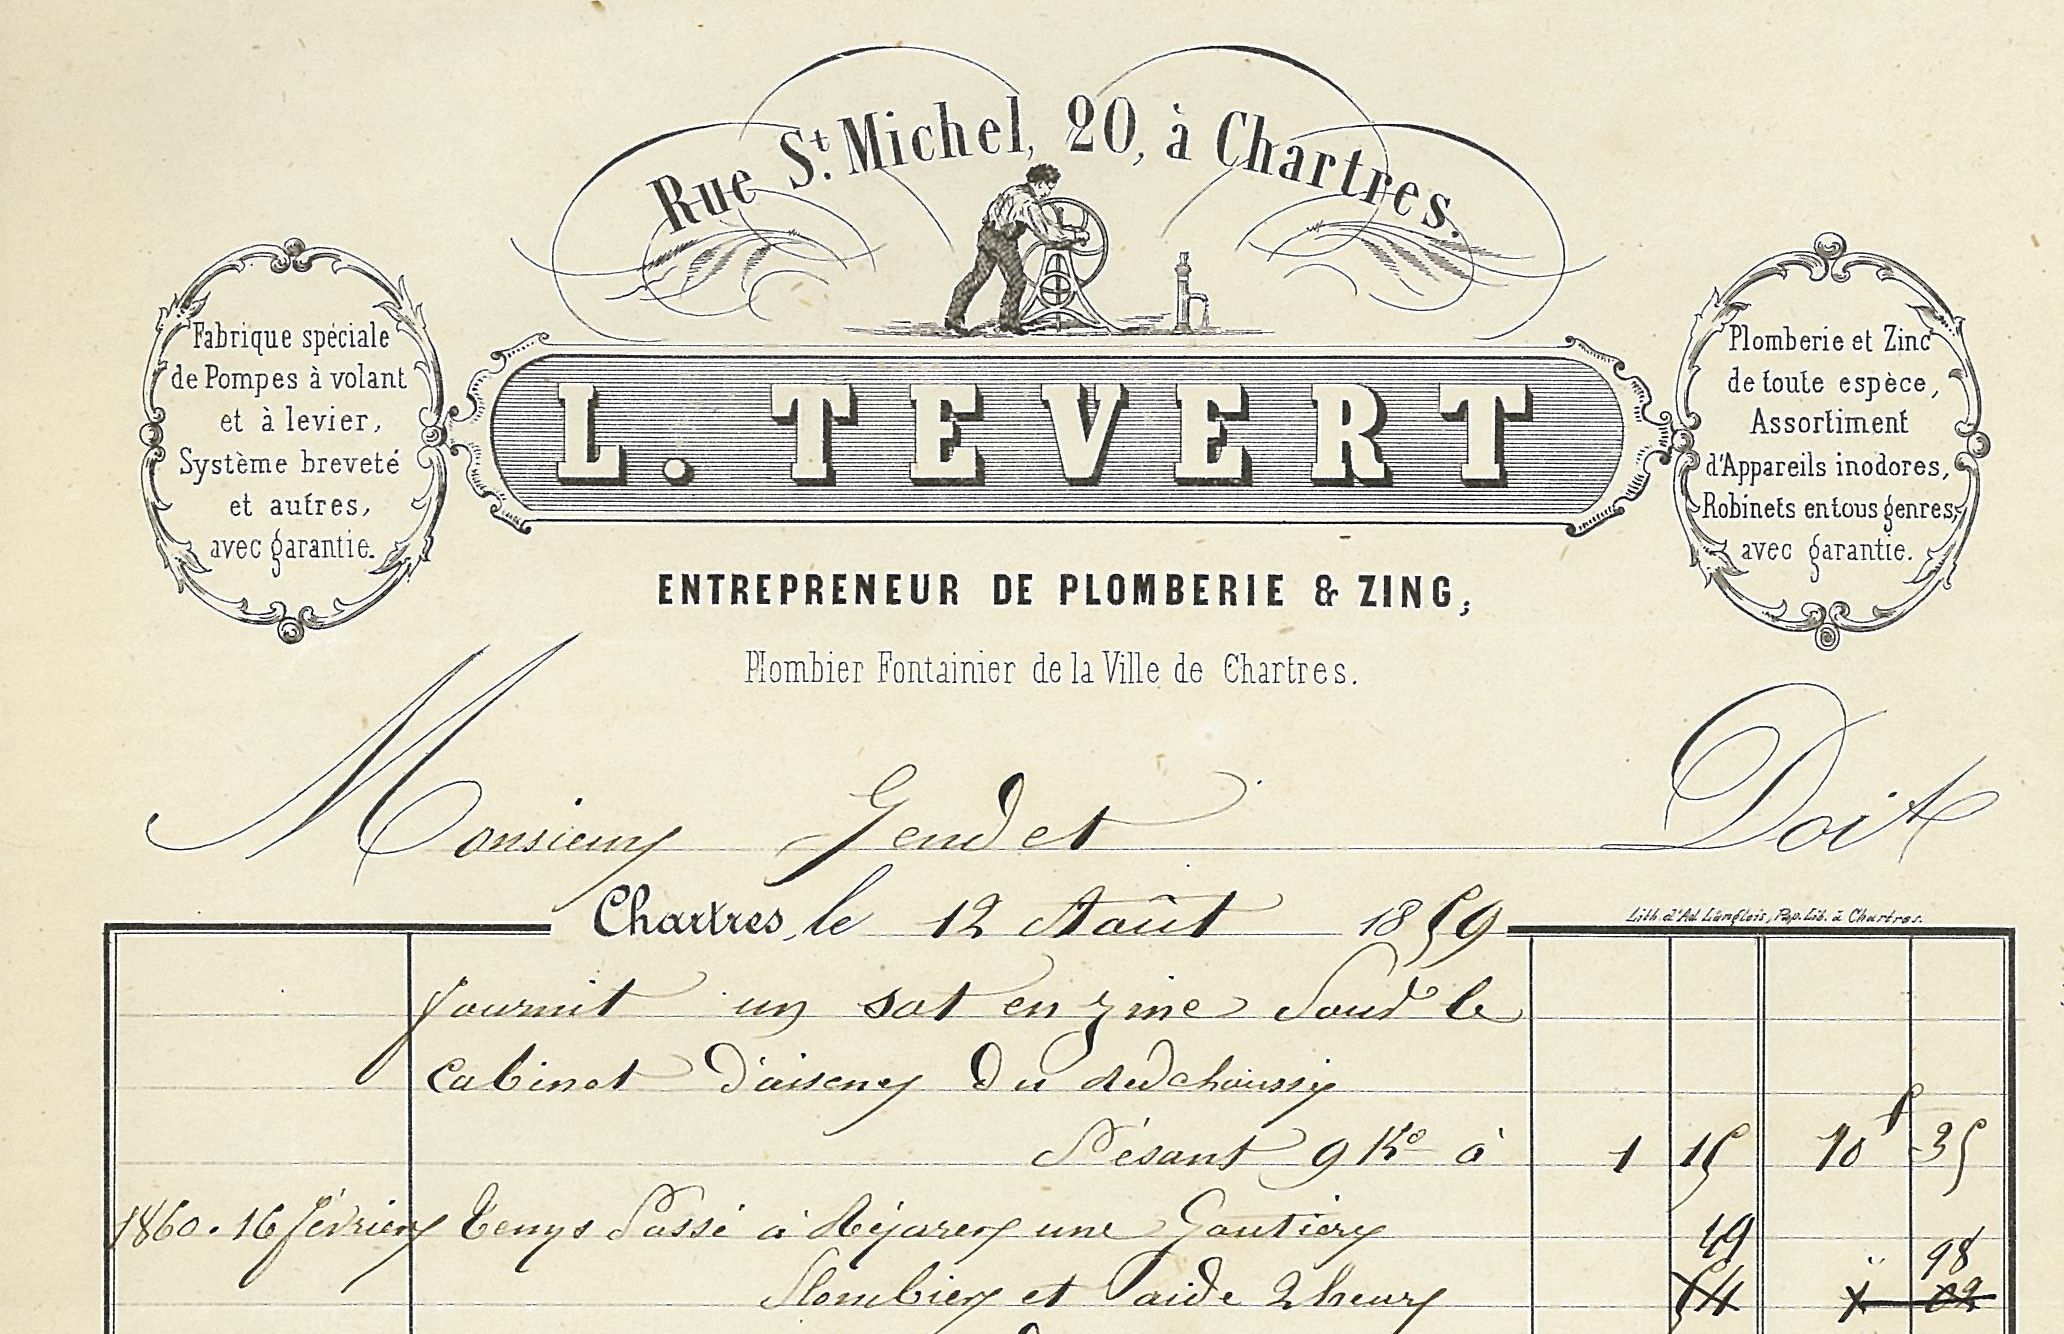 Rue St. Michel, 20, à Chartres.
Fabrique spéciale
de Pompes à volant
et à levier,
Système breveté
et autres,
avec garantie.
L. TEVERT
Plomberie et Zinc
de toute espèce,
Assortiment
d'Appareils inodores,
Robinets en tous genres,
avec garantie.
ENTREPRENEUR DE PLOMBERIE & ZING,
Plombier Fontainier de la Ville de Chartres.
Monsieur Gendet Doit
Chartres, le 12 Août 1859
Lith. d'Ad. Langlois, Pap. Lib. à Chartres.
fournit un sot en zinc Sour le
Cabinet D'aisency Du
Pésant 9 Ko à 1 15 10 f 35
1860. 16 février Temps Passé à Réparer une Goutiery 49 " 98
Plombier et aide 2 heury 54